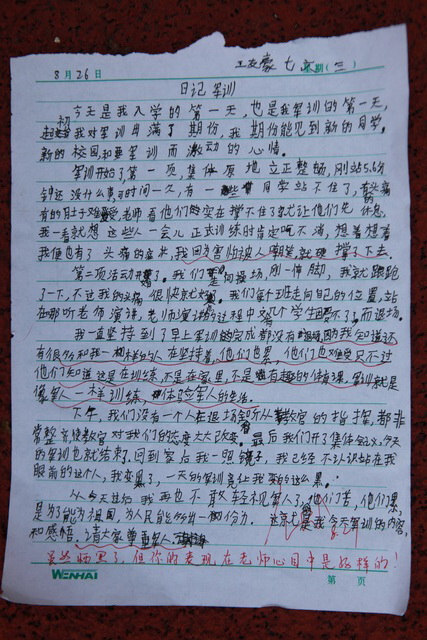 8月26日 七 (三)
日记 军训
今天是我入学的第一天，也是我军训的第一天，
我对军训充满了期份，我期份能见到新的同学，
新的校园和要军训而激动的心情。
军训开始了第一项，集体原地立正整场，刚站5.6分
没什么 时间一久，有一些同学站不住了，
有的肚子难受，老师看他们实在撑不住了就让他们先休息，
我一看就想这些人一会儿正式训时肯定吃不消，想着想着
我便也有了头痛的症状，我因为害怕被人嘲笑就硬撑了下去。
第二项活动开 了。我们 向操场，刚一伸脚，我就踉跄
了一下，不过我的 很快 。我们每个班走向自己的位置，站
在那听老师演讲，老师演讲的过程中又几个学生 不了而退场。
我一直坚持到了早上军训的完成都没有 因为我知道还
有很多和我一样的人在坚持着，他们也累，他们也难受只不过
他们知道这是在训练，不是在家里，不是 有趣的体育课，军训就是
像军人一样训练，体验军人的生活。
下午，我们没有一个人在退场 听从 教官的指挥，都非
常整 使教官对我们的态度大大改变。最后我们开了集体会议，今天
的军训也就结束，回到家后我一照镜子，我已经不认识站在我
眼前的这个人，我变黑了，一天的军训竟让我变的这么黑。
从今天往后我再也不敢轻视军人了，他们苦，他们累，
是为了能为祖国，为人民能够出一份份力。这就是我今天军训的内容，
和感悟。请大家尊重军人
虽然晒黑了，但你的表现，在老师心目中是好样的！
WENHAI 第 页